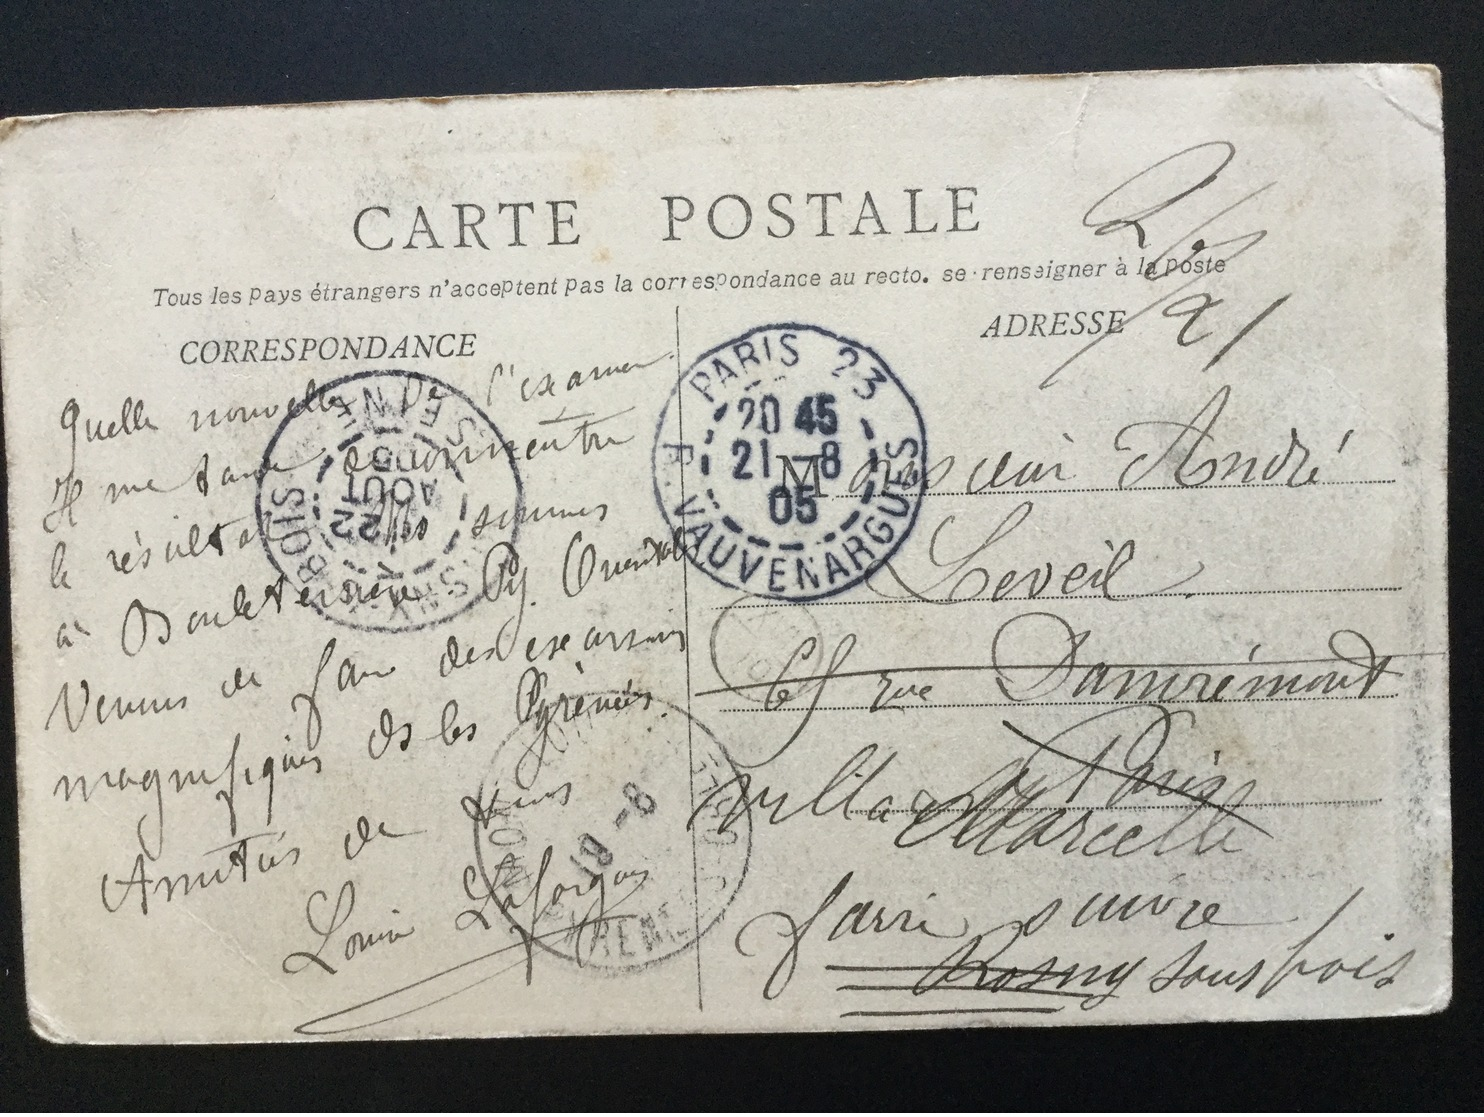 CARTE POSTALE
Tous les pays étrangers n'acceptent pas la correspondance au recto. se renseigner à la poste
CORRESPONDANCE
Quelle nouvelle de l'examen.
Je me tarde de connaitre
le résultat Nes sommes
à Bouleternère Py. Orientales
Venons de faire des excursions
magnifiques ds les Pyrénées.
Amitiés de tous
Louise Laforgue
ADRESSE
21
PARIS 23
20 45
21 -8
05
R. VAUVENARGUES
Monsieur André
Leveil.
65 rue Damrémont
Paris
villa Marcelle
faire suivre
Rosny sous bois
ROSNY-S-BOIS
SEINE
22
AOUT
05
19 -8
PYRENEES